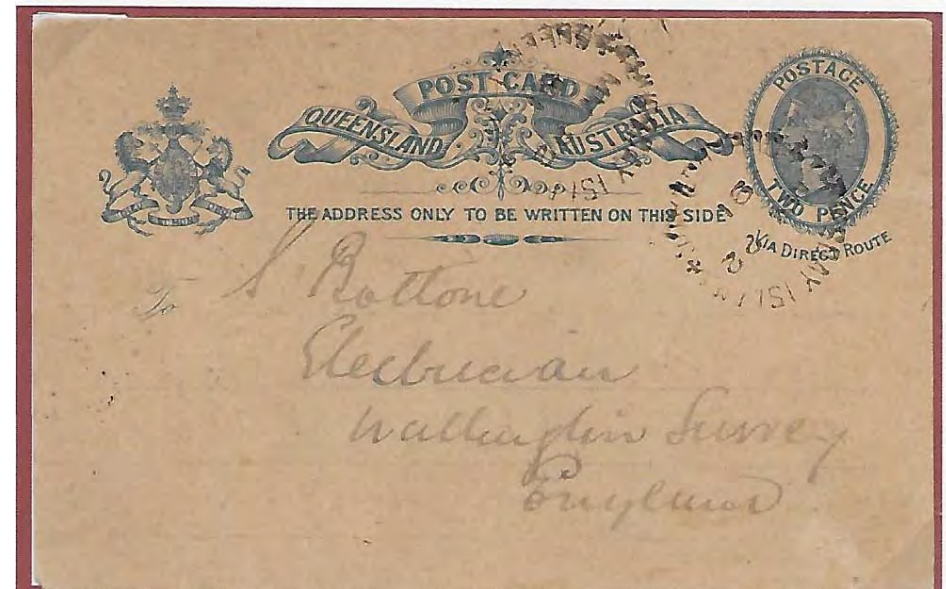 POST CARD
QUEENSLAND AUSTRALIA
THE ADDRESS ONLY TO BE WRITTEN ON THIS SIDE
POSTAGE
TWO PENCE
VIA DIRECT ROUTE
To S Bottone
Electrician
Wallington Surrey
England